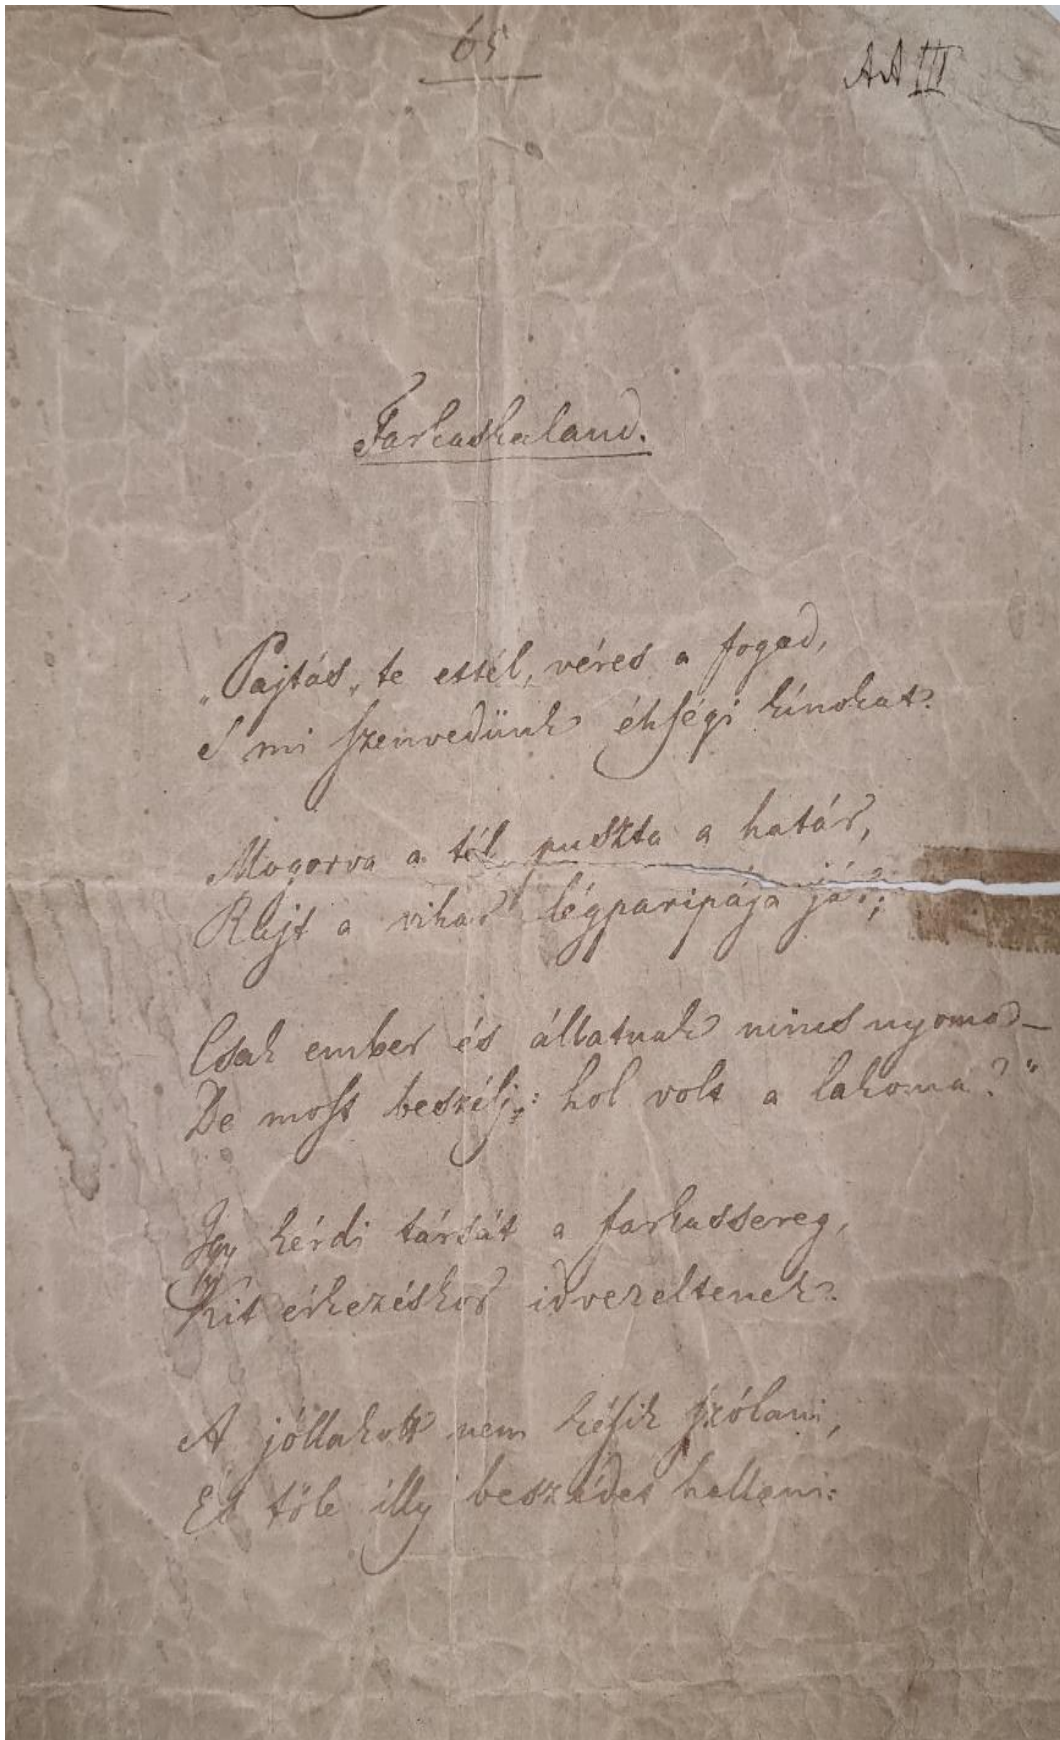 65
AA III
Farkaskaland.
„Pajtás, te ettél, véres a fogad,
S mi szenvedünk éhségi kínokat.
Mogorva a tél, puszta a határ,
Rajt a vihar légparipája jár;
Csak ember és állatnak nincs nyoma –
De most beszélj: hol volt a lakoma?"
Igy kérdi társát a farkassereg,
Kit érkezéskor idvezeltenek.
A jóllakott nem késik szólani,
És tőle illy beszédet hallani: